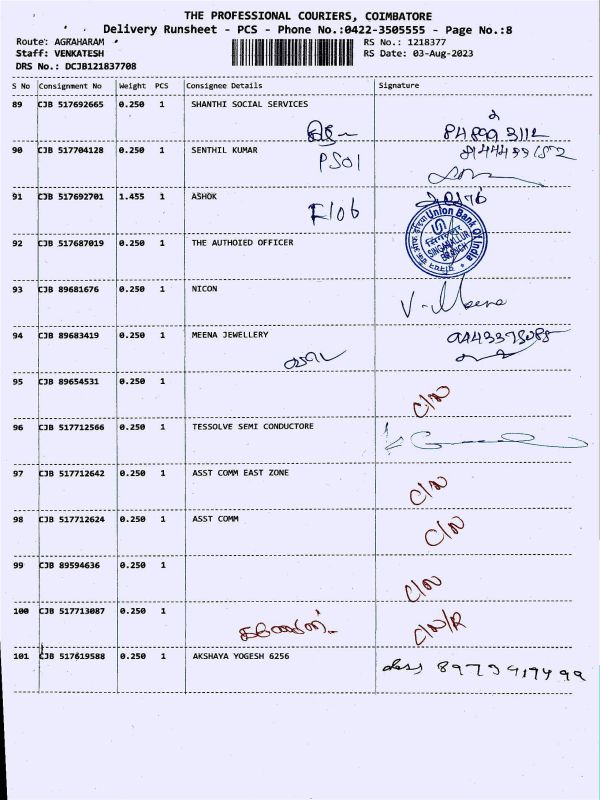 THE PROFESSIONAL COURIERS, COIMBATORE
Delivery Runsheet - PCS - Phone No.:0422-3505555 - Page No.:8
Route: AGRAHARAM RS No.: 1218377
Staff: VENKATESH RS Date: 03-Aug-2023
DRS No.: DCJB121837708
S No Consignment No Weight PCS Consignee Details Signature
89 CJB 517692665 0.250 1 SHANTHI SOCIAL SERVICES
90 CJB 517704128 0.250 1 SENTHIL KUMAR
PS01
91 CJB 517692701 1.455 1 ASHOK
F106
Union Bank Of India
SINGANALLUR
BRANCH
92 CJB 517687019 0.250 1 THE AUTHOIED OFFICER
93 CJB 89681676 0.250 1 NICON
V-Meena
94 CJB 89683419 0.250 1 MEENA JEWELLERY
95 CJB 89654531 0.250 1
C/N
96 CJB 517712566 0.250 1 TESSOLVE SEMI CONDUCTORE
97 CJB 517712642 0.250 1 ASST COMM EAST ZONE
C/N
98 CJB 517712624 0.250 1 ASST COMM
C/N
99 CJB 89594636 0.250 1
C/N
100 CJB 517713087 0.250 1
C/N/R
101 CJB 517619588 0.250 1 AKSHAYA YOGESH 6256